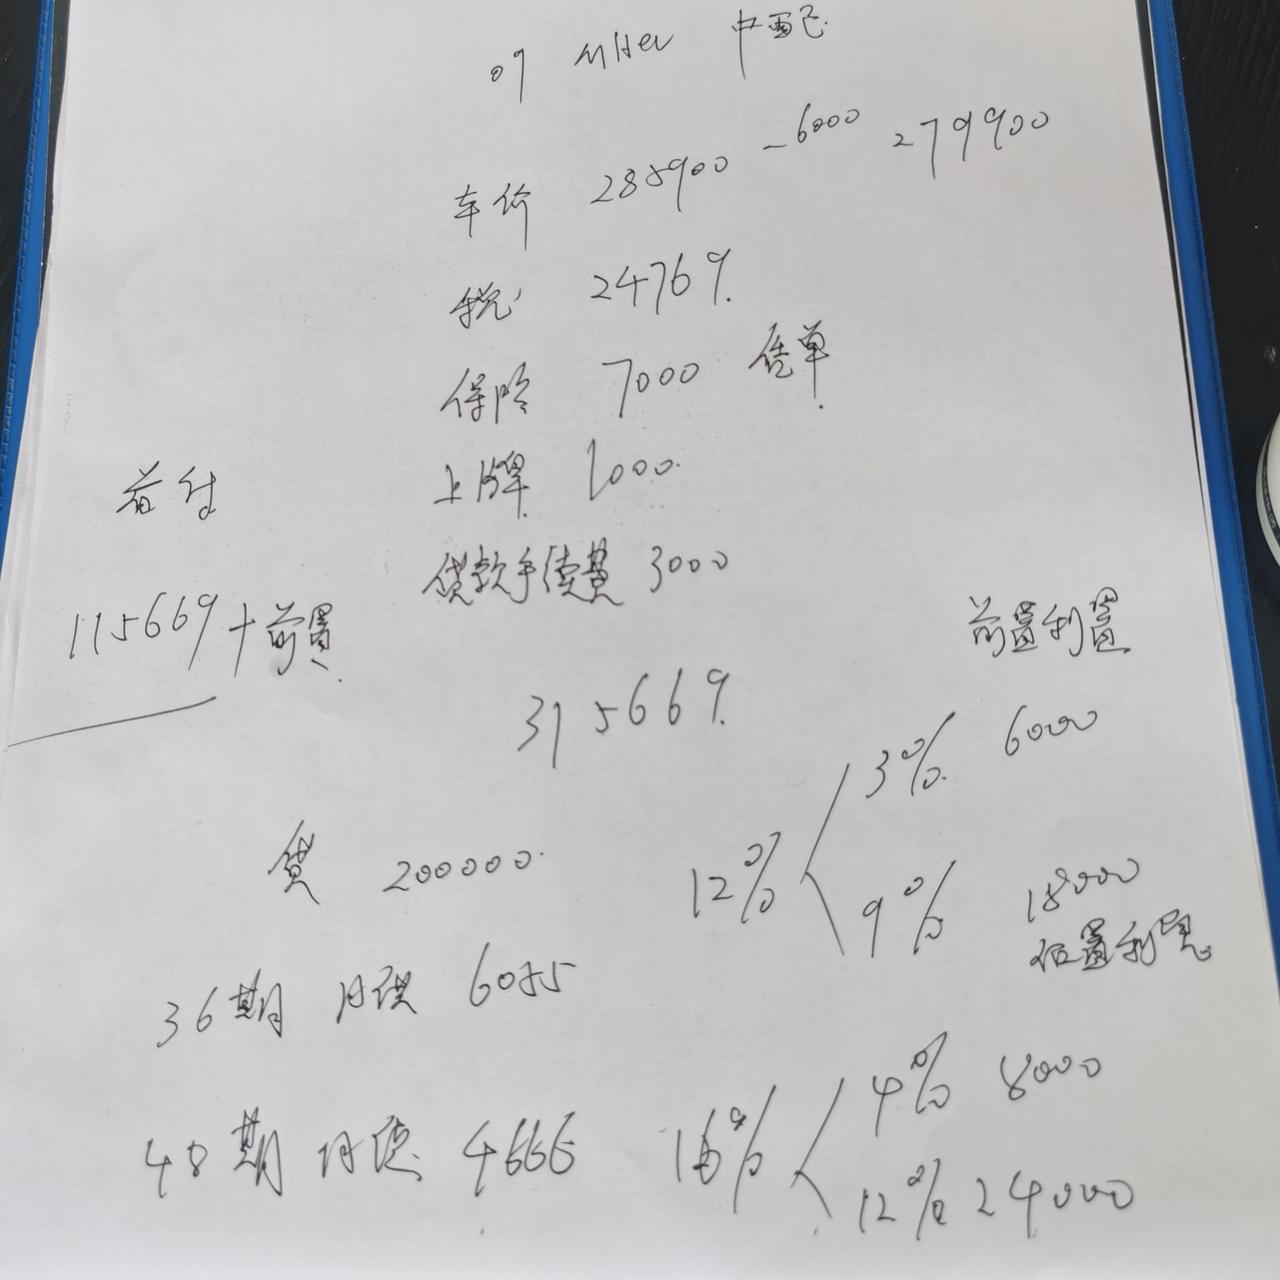 09 中配
车价 285900 -6000 279900
税 24769.
保险 7000 凭单.
上牌 1000.
首付
贷款手续费 3000
115669+前置
前置利置
315669.
3% 6000
贷 200000.
12%
9% 18000
后置利息。
36期 月供 6055
4% 8000
48期 月供 4666
16%
12% 24000